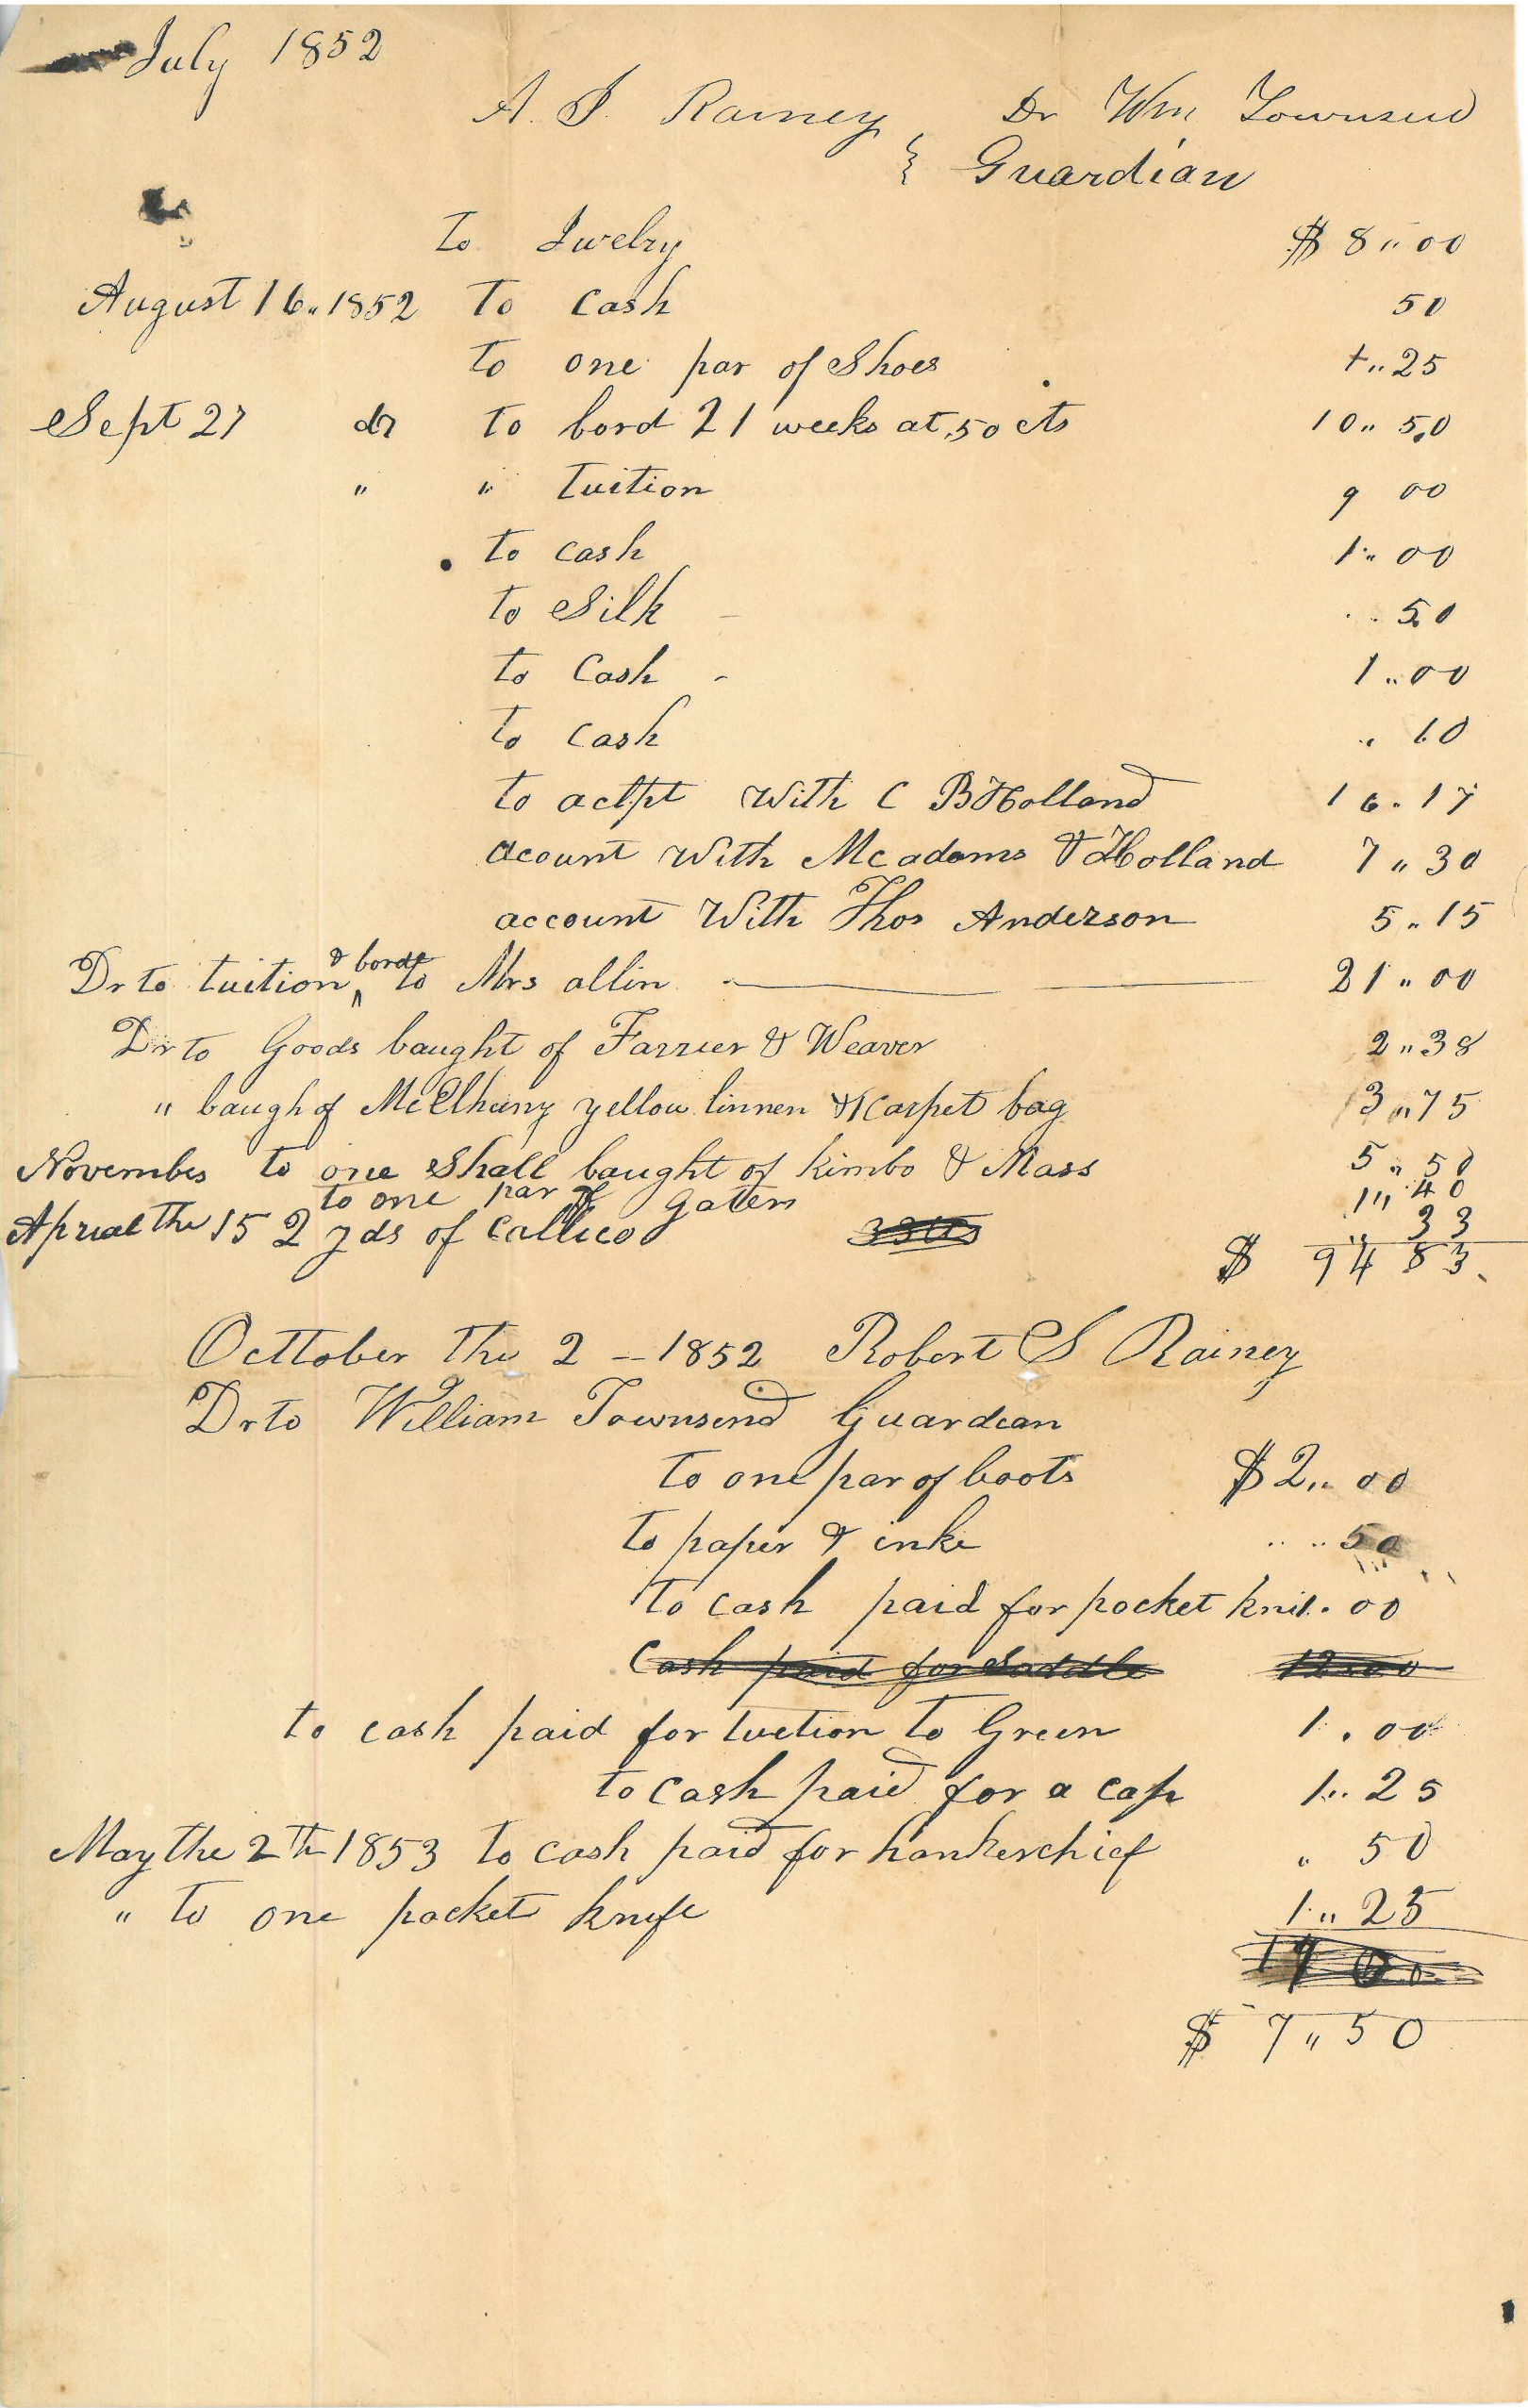 July 1852
A. J. Rainey Dr Wm Townsend
Guardian
To Jwelry $ 8.00
August 16. 1852 To Cash 50
To one par of Shoes 1.. 25
Sept 27 dr To bord 21 weeks at .50 cts 10.. 50
" " Tuition 9 00
To cash 1.. 00
To Silk 50
To Cash 1.. 00
To Cash .. 10
To with C B Holland 16. 17
acount with Mcadams & Holland 7 .. 30
account With Thos Anderson 5 .. 15
Dr to tuition & borde to Mrs allin 21 .. 00
Dr to Goods baught of Farrier & Weaver 2 .. 38
" baugh of McElhany yellow linnen & 1 carpet bag 3 .. 75
November to one Shall baught of Kimbo & Mass 5 .. 50
to one par of Gaters 1 " 40
Aprial the 15 2 yds of Callico 33 cts .. 33
$ 94 83
Octtober the 2 - 1852 Robert S Rainey
Dr to William Townsend Guardian
To one par of boots $ 2 .. 00
To paper & inke .. 50
To cash paid for pocket kni 1. 00
Cash paid for Saddle 12.00
to cash paid for tuction to Green 1 . 00
to cash paid for a cap 1.. 25
May the 2th 1853 to cash paid for hankerchief " 50
" to one pocket knife 1 .. 25
$ 7 " 50